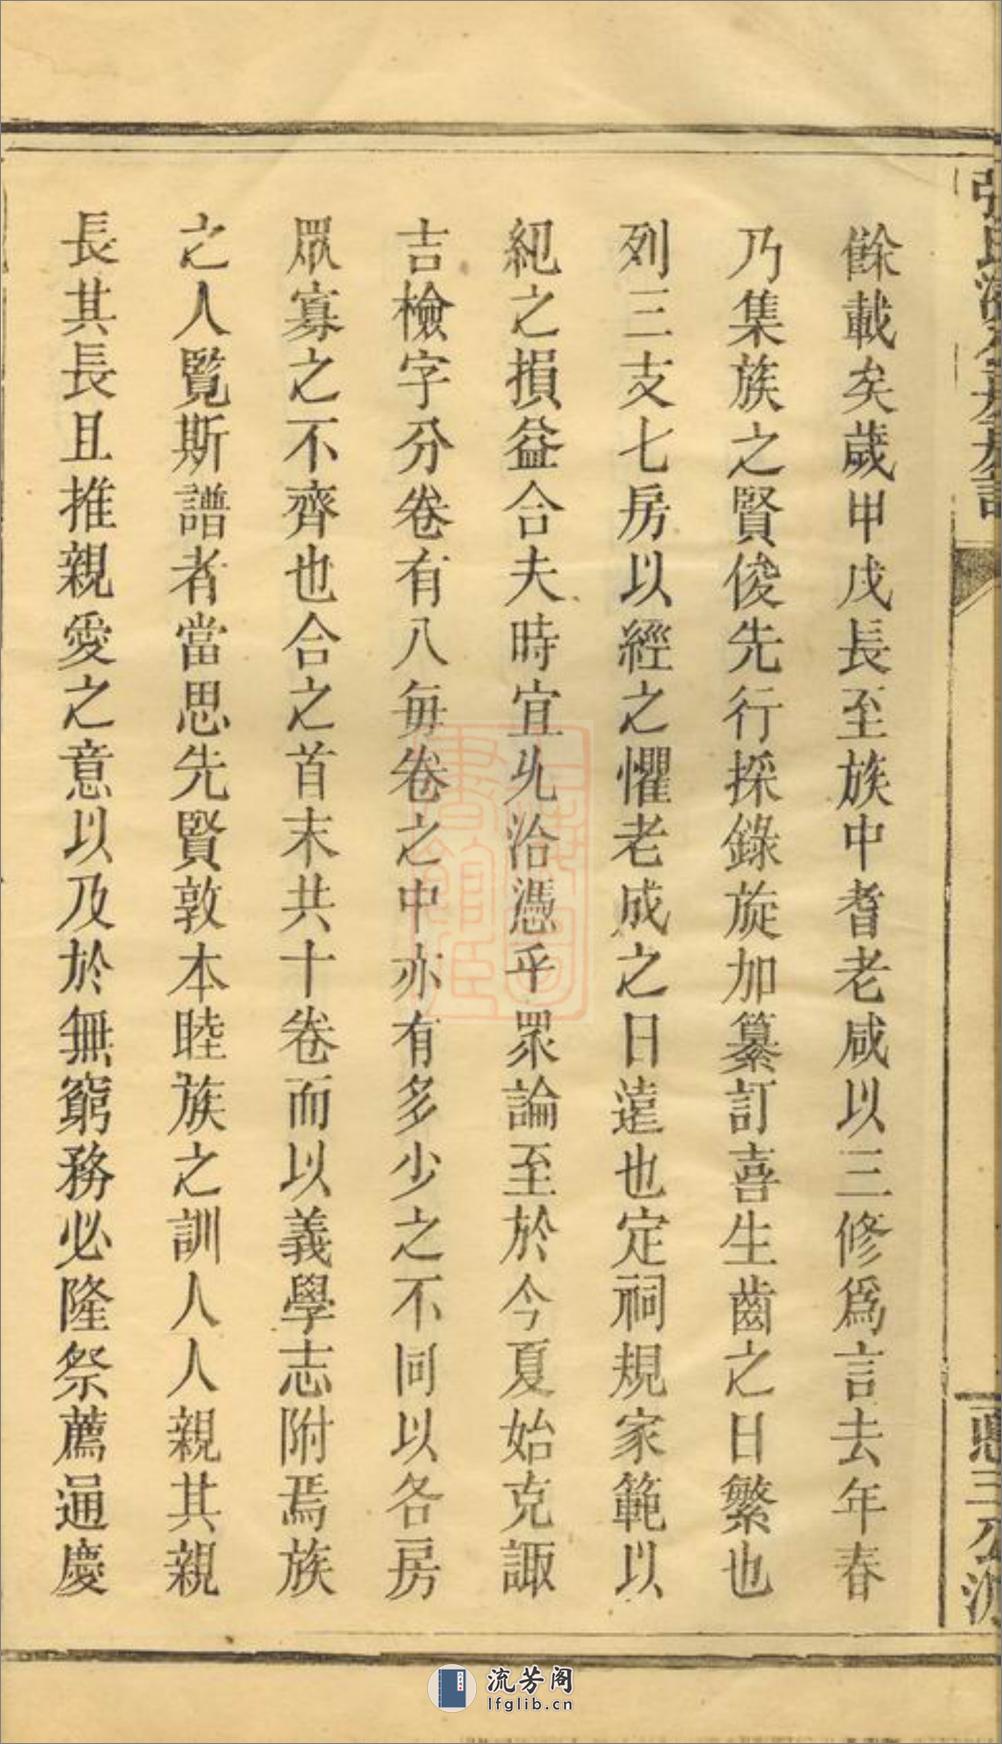 餘載矣歲甲戌長至族中耆老咸以三修爲言去年春
乃集族之賢俊先行採錄旋加纂訂喜生齒之日繁也
列三支七房以經之懼老成之日遠也定祠規家範以
紀之損益合夫時宜允洽憑乎眾論至於今夏始克諏
吉檢字分卷有八每卷之中亦有多少之不同以各房
眾寡之不齊也合之首末共十卷而以義學志附焉族
之人覽斯譜者當思先賢敦本睦族之訓人人親其親
長其長且推親愛之意以及於無窮務必隆祭薦通慶
流芳阁
lfglib.cn